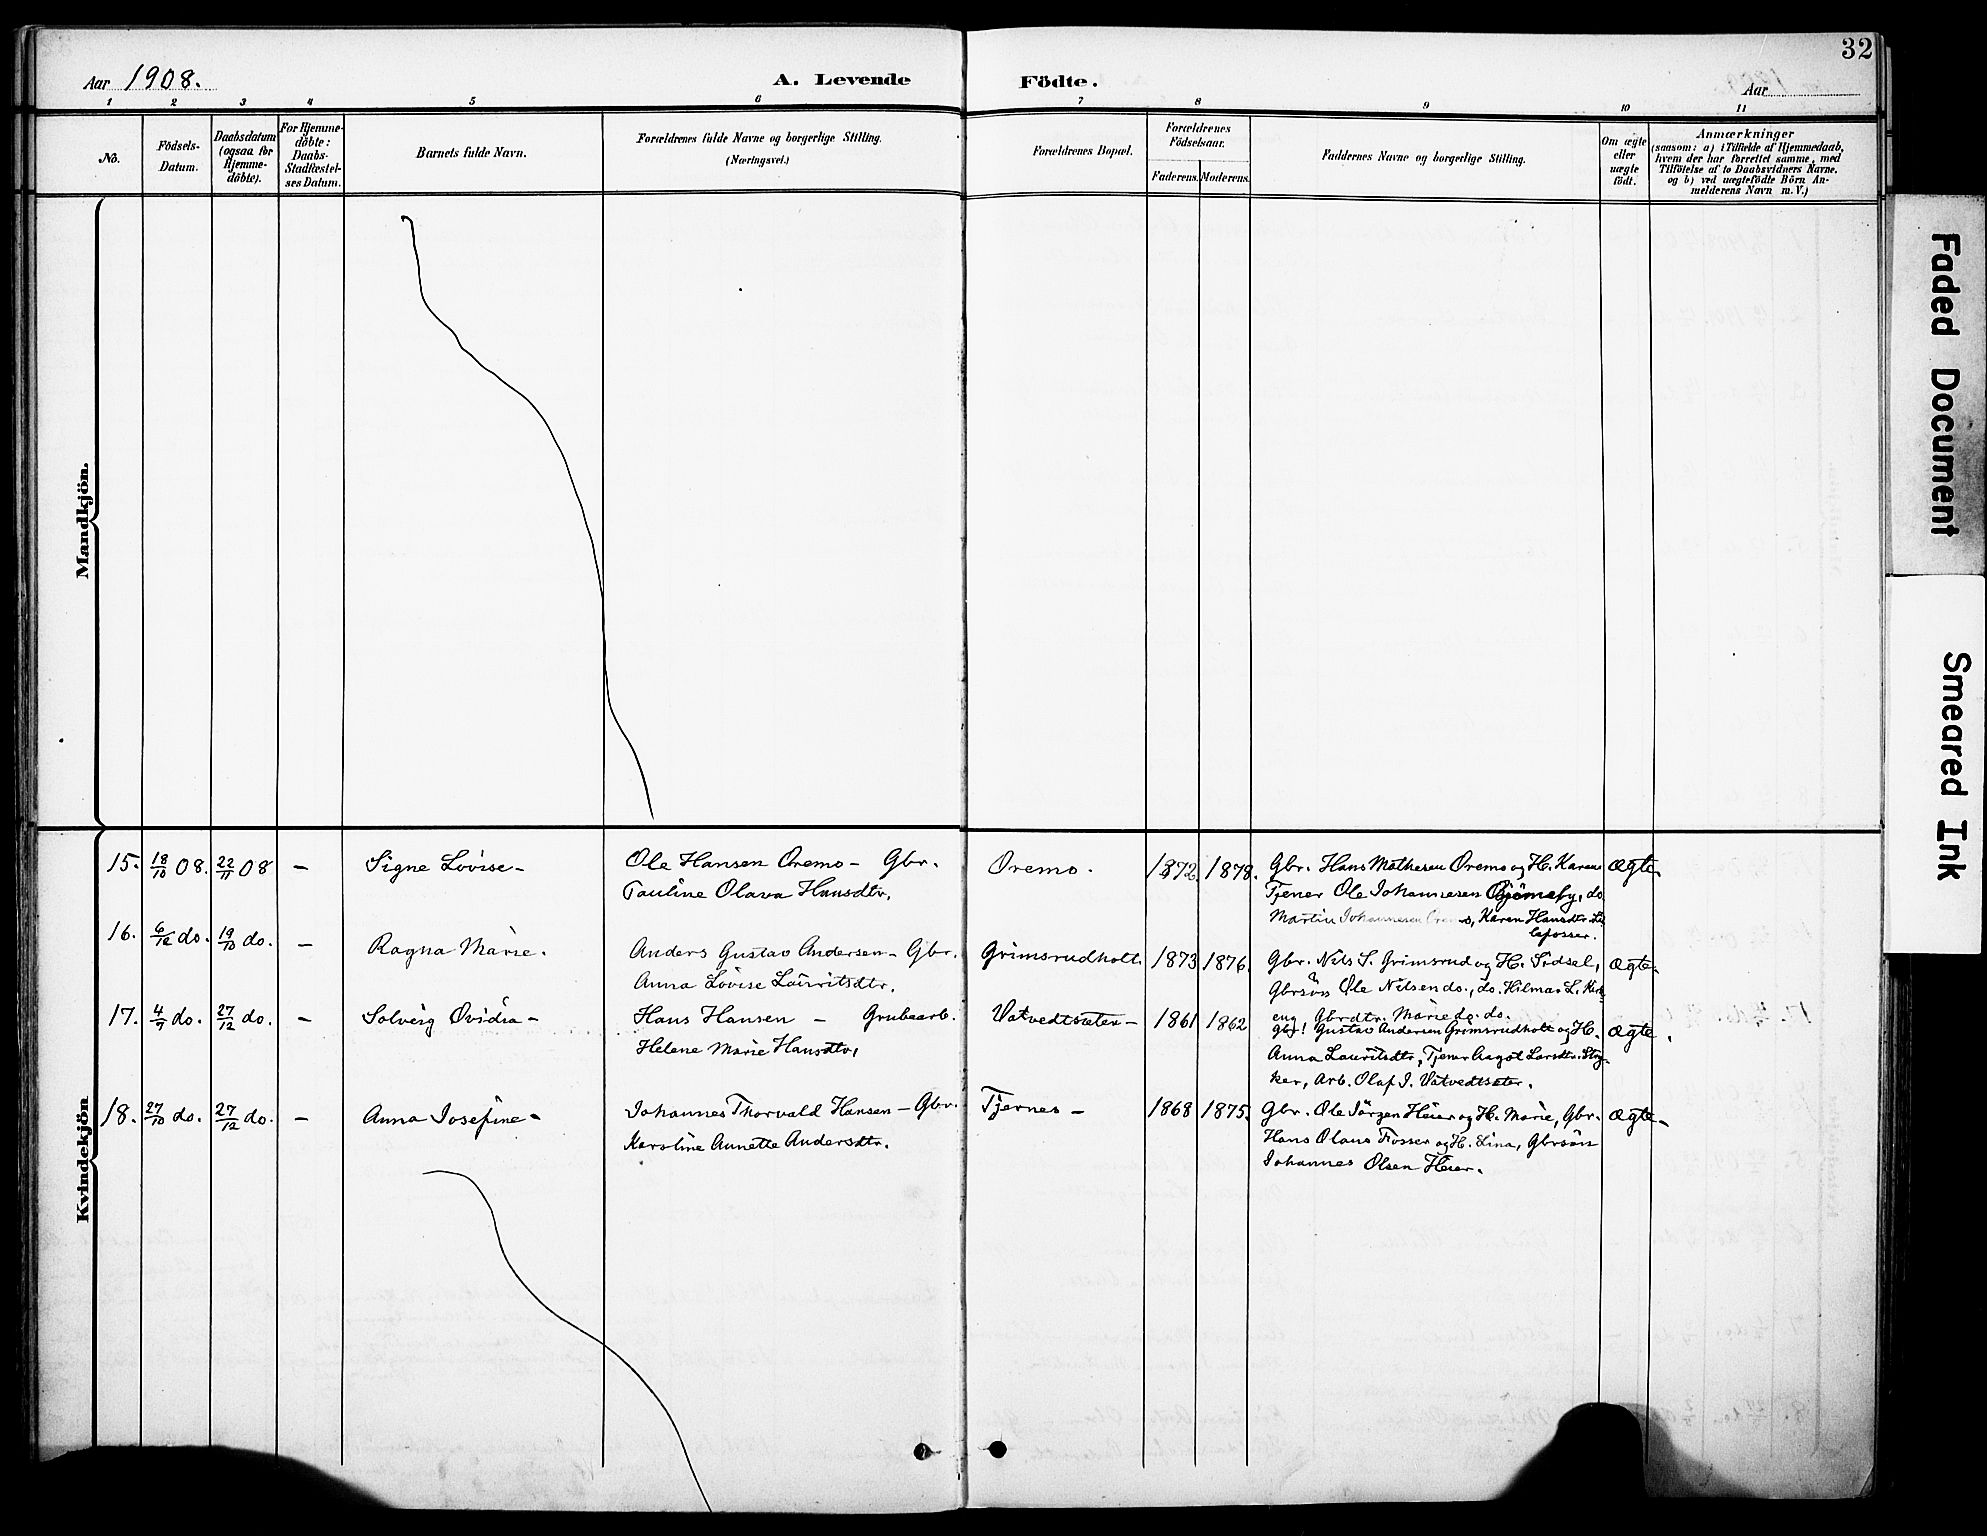 32
Aar 1908.
A. Levende Födte.
Aar
1 2 3 4 5 6 7 8 9 10 11
No.
Födsels-
Datum.
Daabsdatum
(ogsaa for
Hjemme-
döbte).
For Hjemme-
döbte:
Daabs-
Stadfæstel-
ses Datum.
Barnets fulde Navn.
Forældrenes fulde Navne og borgerlige Stilling.
(Næringsvei.)
Forældrenes Bopæl.
Forældrenes
Födselsaar.
Faderens. Moderens.
Faddernes Navne og borgerlige Stilling.
Om ægte
eller
uægte
født.
Anmærkninger
(saasom: a) i Tilfælde af Hjemmedaab,
hvem der har forrettet samme, med
Tilföielse af to Daabsvidners Navne,
og b) ved uægtefödte Börn An-
melderens Navn m. V.)
Mandkjön.
Kvindekjön
15. 18/10 08. 22/11 08 – Signe Lovise – Ole Hansen Oremo – Gbr. Oremo. 1872. 1878. Gbr. Hans Mathesen Oremo og H. Karen ægte.
Pauline Olava Hansdtr. Tjener Ole Johannesen, do.
Martin Johannesen, Karen Hansdtr.
16. 6/12 do. 19/10 do. – Ragna Marie. Anders Gustav Andersen – Gbr. Grimsrudholt. 1873 1876. Gbr. Nils S. Grimsrud og H. Sidsel, ægte.
Anna Lovise Lauritsdtr. Gbrsön Ole Nilsen do., do. Hilmar L. Kirk-
eng, Gbrdtr. Marie do. do.
17. 4/9 do. 27/12 do. – Solveig Ovidia – Hans Hansen – Grubearb. Vatvedtsæter – 1861 1862 Gbr. Gustav Andersen Grimsrudholt og H. ægte.
Helene Marie Hansdtr. Anna Lauritsdtr, Tjener Aagot Larsdtr.
ker, Arb. Olaf J. Vatvedtsæter.
18. 27/10 do. 27/12 do. – Anna Josefine – Johannes Thorvald Hansen – Gbr. Tjernes – 1868 1875. Gbr. Ole Jörgen Heier og H. Marie, Gbr. ægte –
Karoline Annette Andersdtr. Hans Olaus Fosser og H. Lina, Gbrsön
Johannes Olsen Heier.
Faded Document
Smeared Ink